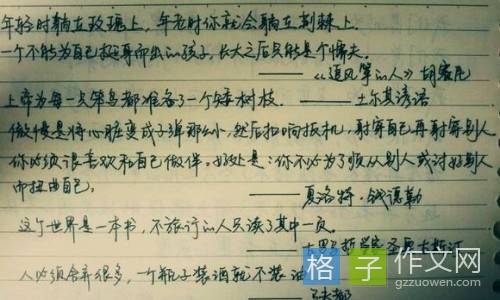 年轻时躺在玫瑰上,年老时你就会躺在荆棘上.
一个不能为自己挺身而出的孩子,长大之后只能是个懦夫.
——《追风筝的人》胡赛尼
上帝为每一只笨鸟都准备了一个矮树枝. ——土耳其谚语
傲慢是将心脏变成子弹那么小,然后扣响扳机,射穿自己再射穿别人
你必须很喜欢和自己做伴。好处是:你不必为了顺从别人或讨好别人
而扭曲自己。
——夏洛特·钱德勒
这个世界是一本书,不旅行的人只读了其中一页。
圣奥古斯汀
人必须舍弃很多,一个瓶子装酒就不装油
格子作文网
gzzuowen.com